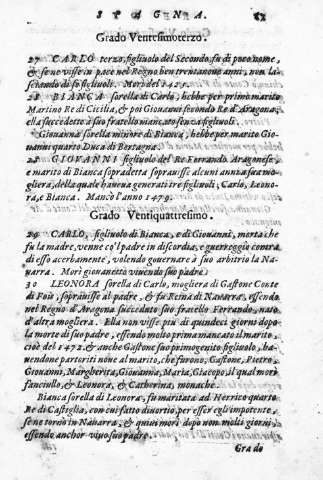 SPAGNA. 82
Grado Ventesimoterzo.
27 CARLO terzo, figliuolo del Secondo, fu di poco nome,
& se ne visse in pace nel Regno ben trentanoue anni, non la-
sciando di se figliuoli. Morì del 1425.
28 BIANCA sorella di Carlo, hebbe per primo marito
Martino Re di Cicilia, & poi Giouanni secondo Re d'Aragona,
ella succedette à suo fratello mancato senza figliuoli.
Giouanna sorella minore di Bianca, hebbe per marito Gio-
uanni quarto Duca di Bertagna.
28 GIOVANNI figliuolo del Re Ferrando Aragonese,
e marito di Bianca sopradetta soprauisse alcuni anni a sua mo-
gliera, della quale haueua generati tre figliuoli, Carlo, Leono-
ra, e Bianca. Mancò l'anno 1479.
Grado Ventiquattresimo.
29 CARLO, figliuolo di Bianca, e di Giouanni, morta che
fu la madre, venne co'l padre in discordia, e guerreggiò contra
di esso acerbamente, volendo gouernare à suo arbitrio la Na-
uarra. Morì giouanetto viuendo suo padre.
30 LEONORA sorella di Carlo, mogliera di Gastone Conte
di Fois, soprauisse al padre, & fu Reina di Nauarra, essendo
nel Regno d'Aragona succeduto suo fratello Ferrando, nato
d'altra mogliera. Ella non visse piu di quindeci giorni dopo
la morte di suo padre, essendo molto prima mancato il marito,
cioè del 1472. & anche Gastone suo primogenito figliuolo, ha-
uendone partoriti noue al marito, che furono, Gastone, Pietro,
Giouanni, Margherita, Giouanna, Maria, Giacopo, il qual morì
fanciullo, & Leonora, & Catherina, monache.
Bianca sorella di Leonora, fu maritata ad Herrico quarto
Re di Castiglia, con cui fatto diuortio, per esser egli impotente,
se ne tornò in Nauarra, & quiui morì dopo non molti giorni,
essendo anchor viuo suo padre.
Grado